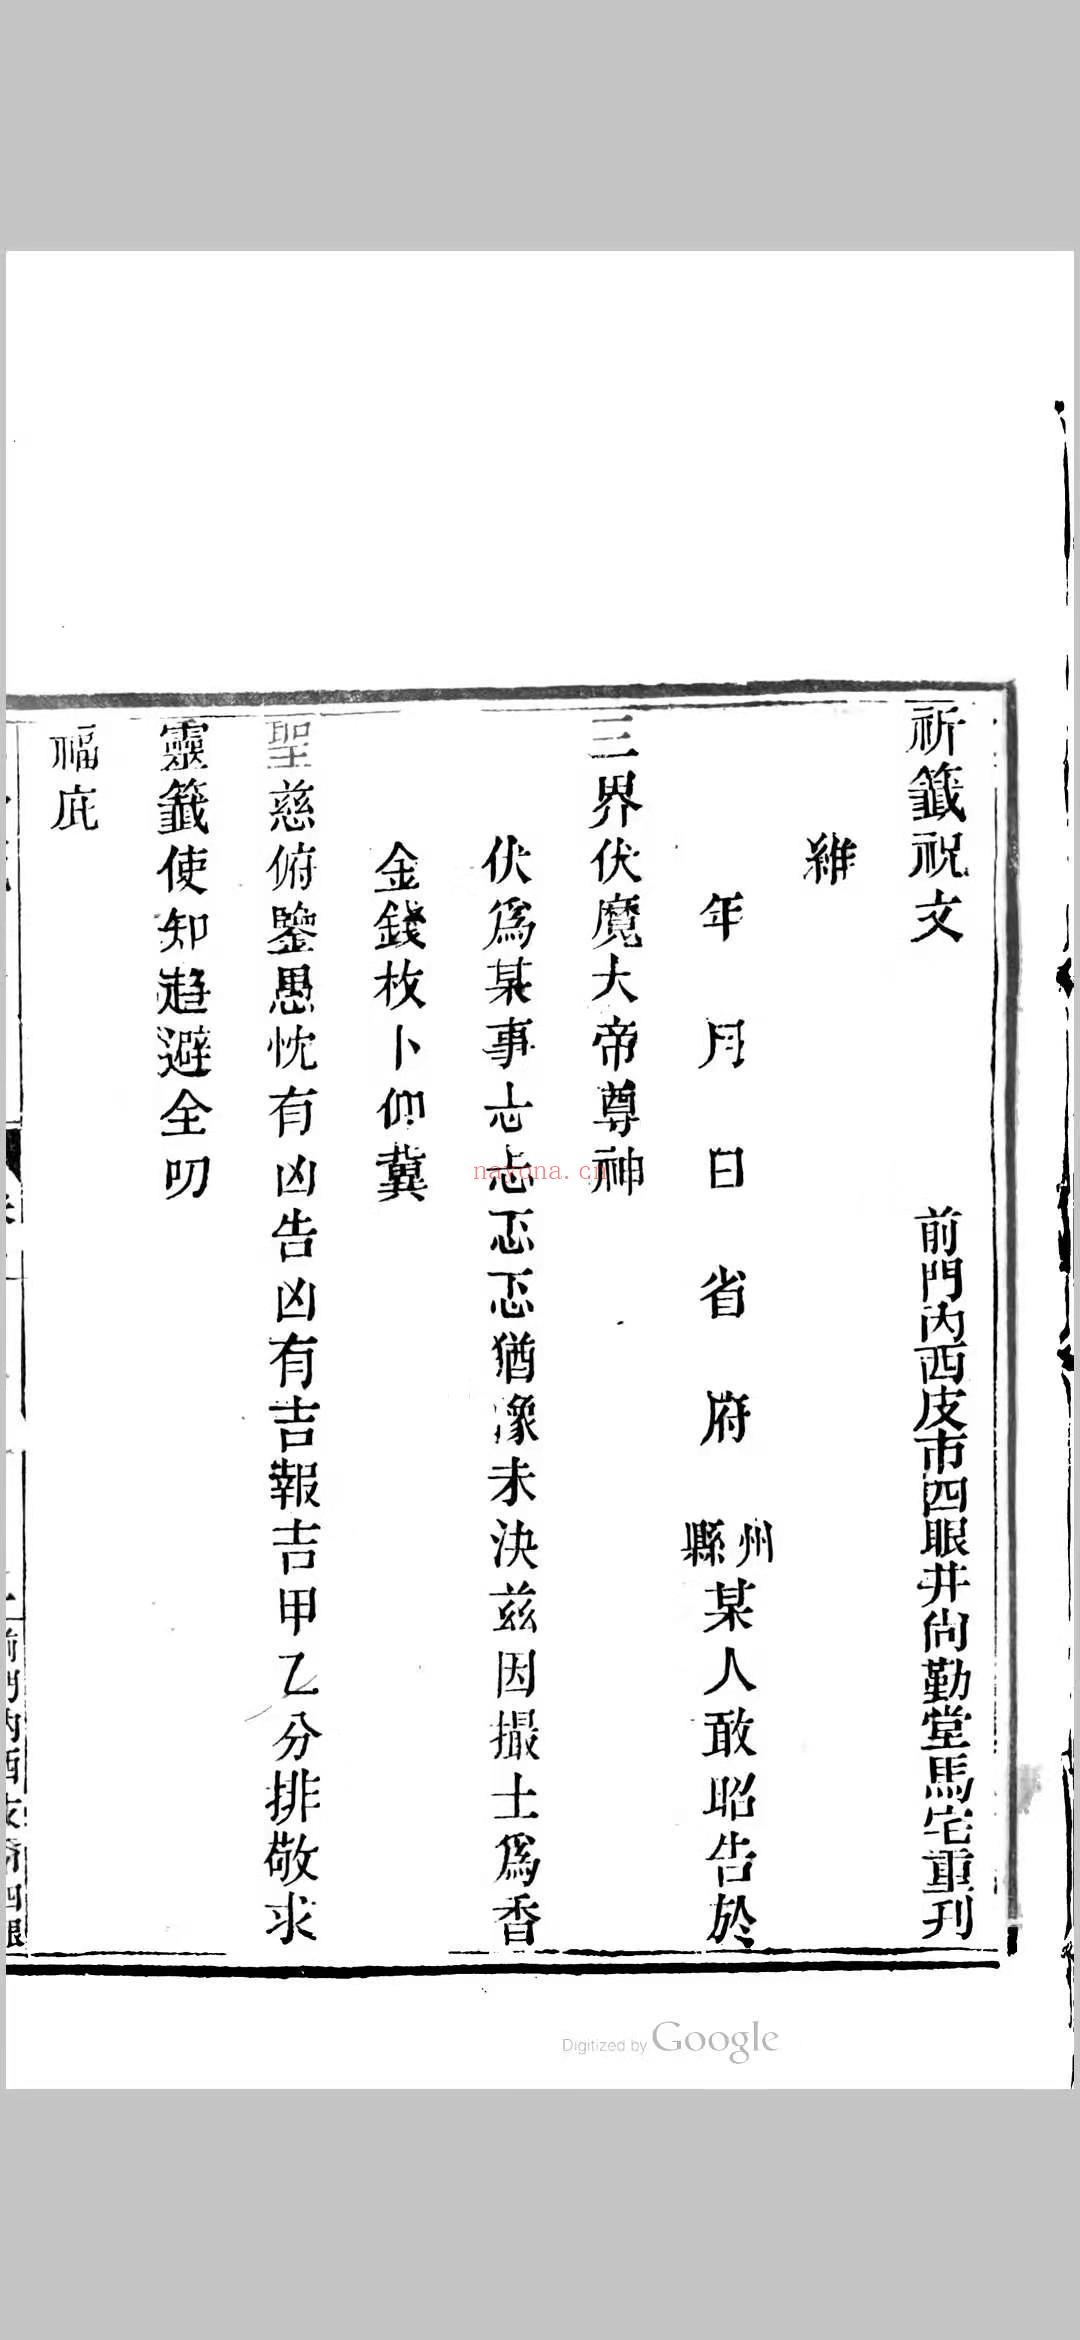 祈籤祝文　前門內西皮市四眼井尙勤堂馬宅重刊
維
年　月　日　省　府　州縣某人敢昭告於
三界伏魔大帝尊神
伏爲某事忐忐忑忑猶豫未決兹因撮土爲香
金錢枚卜仰冀
聖慈俯鑒愚忱有凶告凶有吉報吉甲乙分排敬求
靈籤使知趨避全叨
福庇
nayona.cn
Digitized by Google